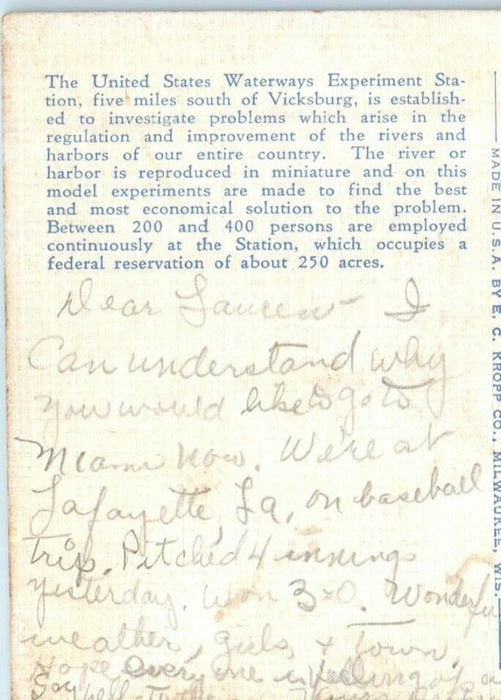 The United States Waterways Experiment Sta-
tion, five miles south of Vicksburg, is establish-
ed to investigate problems which arise in the
regulation and improvement of the rivers and
harbors of our entire country. The river or
harbor is reproduced in miniature and on this
model experiments are made to find the best
and most economical solution to the problem.
Between 200 and 400 persons are employed
continuously at the Station, which occupies a
federal reservation of about 250 acres.
Dear I
Can understand why
you would like to go to
Miami now. We're at
Lafayette, La, on baseball
trip. Pitched 4 innings
yesterday. Won 3-0. Wonderful
weather, girls + town.
Hope everyone is
MADE IN U.S.A. BY E. C. KROPP CO., MILWAUKEE, WIS.